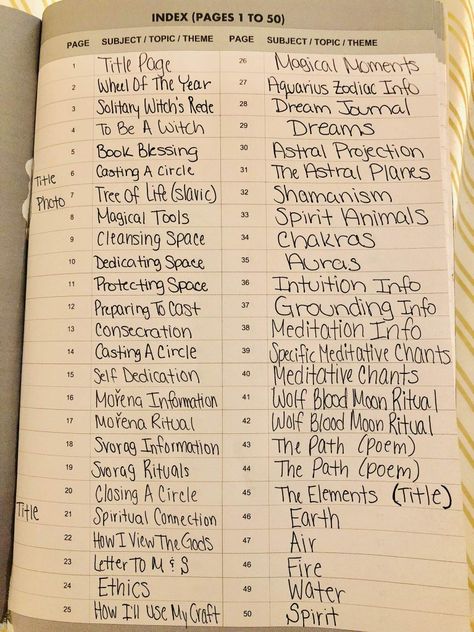 INDEX (PAGES 1 TO 50)
PAGE SUBJECT / TOPIC / THEME
1 Title Page
2 Wheel Of The Year
3 Solitary Witch's Rede
4 To Be A Witch
5 Book Blessing
6 Casting A Circle
Title
Photo
7 Tree Of Life (Slavic)
8 Magical Tools
9 Cleansing Space
10 Dedicating Space
11 Protecting Space
12 Preparing To Cast
13 Consecration
14 Casting A Circle
15 Self Dedication
16 Mořena Information
17 Mořena Ritual
18 Svorag Information
19 Svorag Rituals
20 Closing A Circle
Title
21 Spiritual Connection
22 How I View The Gods
23 Letter To M & S
24 Ethics
25 How I'll Use My Craft
PAGE SUBJECT / TOPIC / THEME
26 Magical Moments
27 Aquarius Zodiac Info
28 Dream Journal
29 Dreams
30 Astral Projection
31 The Astral Planes
32 Shamanism
33 Spirit Animals
34 Chakras
35 Auras
36 Intuition Info
37 Grounding Info
38 Meditation Info
39 Specific Meditative Chants
40 Meditative Chants
41 Wolf Blood Moon Ritual
42 Wolf Blood Moon Ritual
43 The Path (Poem)
44 The Path (poem)
45 The Elements (Title)
46 Earth
47 Air
48 Fire
49 Water
50 Spirit